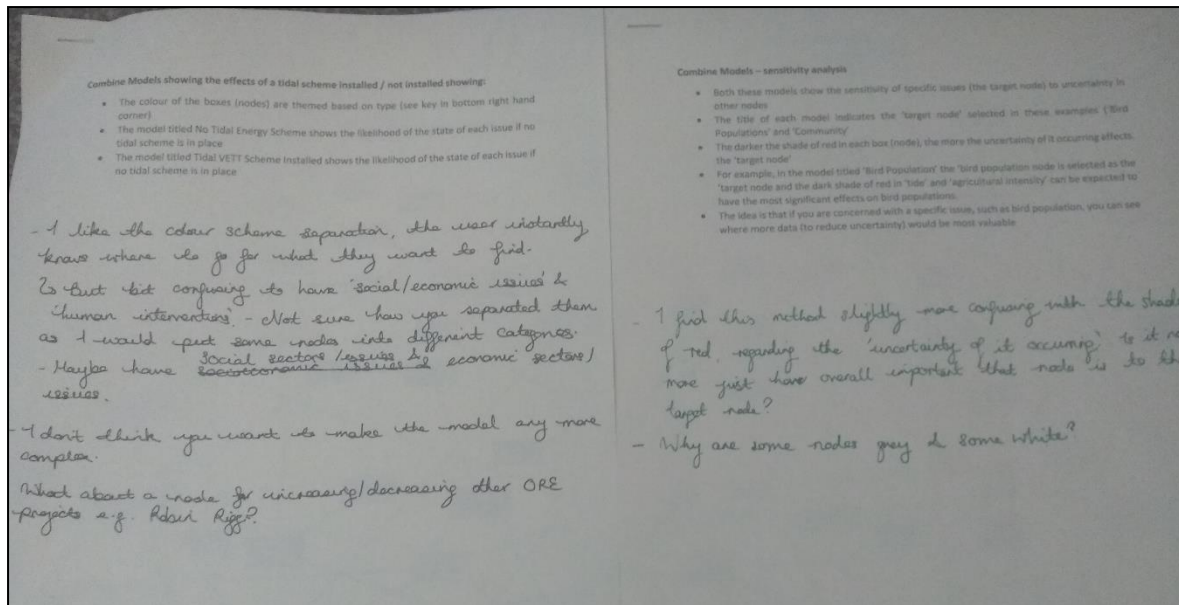 Combine Models showing the effects of a tidal scheme installed / not installed showing:
• The colour of the boxes (nodes) are themed based on type (see key in bottom right hand
corner)
• The model titled No Tidal Energy Scheme shows the likelihood of the state of each issue if no
tidal scheme is in place
• The model titled Tidal VETT Scheme Installed shows the likelihood of the state of each issue if
no tidal scheme is in place
- I like the colour scheme separation, the user instantly
knows where to go for what they want to find.
↳ but bit confusing to have 'social/economic issues' &
'human interventions'. - Not sure how you separated them
as I would put some nodes into different categories.
- Maybe have social sectors/issues & economic sectors/
issues.
- I don't think you want to make the model any more
complex.
What about a node for increasing/decreasing other ORE
projects e.g. Robin Rigg?
Combine Models – sensitivity analysis
• Both these models show the sensitivity of specific issues (the target node) to uncertainty in
other nodes
• The title of each model indicates the 'target node' selected in these examples ('Bird
Populations' and 'Community'
• The darker the shade of red in each box (node), the more the uncertainty of it occurring affects
the 'target node'
• For example, in the model titled 'Bird Population' the 'bird population node is selected as the
'target node and the dark shade of red in 'tide' and 'agricultural intensity' can be expected to
have the most significant effects on bird populations.
• The idea is that if you are concerned with a specific issue, such as bird population, you can see
where more data (to reduce uncertainty) would be most valuable
- I find this method slightly more confusing with the shade
of red, regarding the 'uncertainty of it occurring' Is it
more just how overall important that node is to
target node?
- Why are some nodes grey & some white?